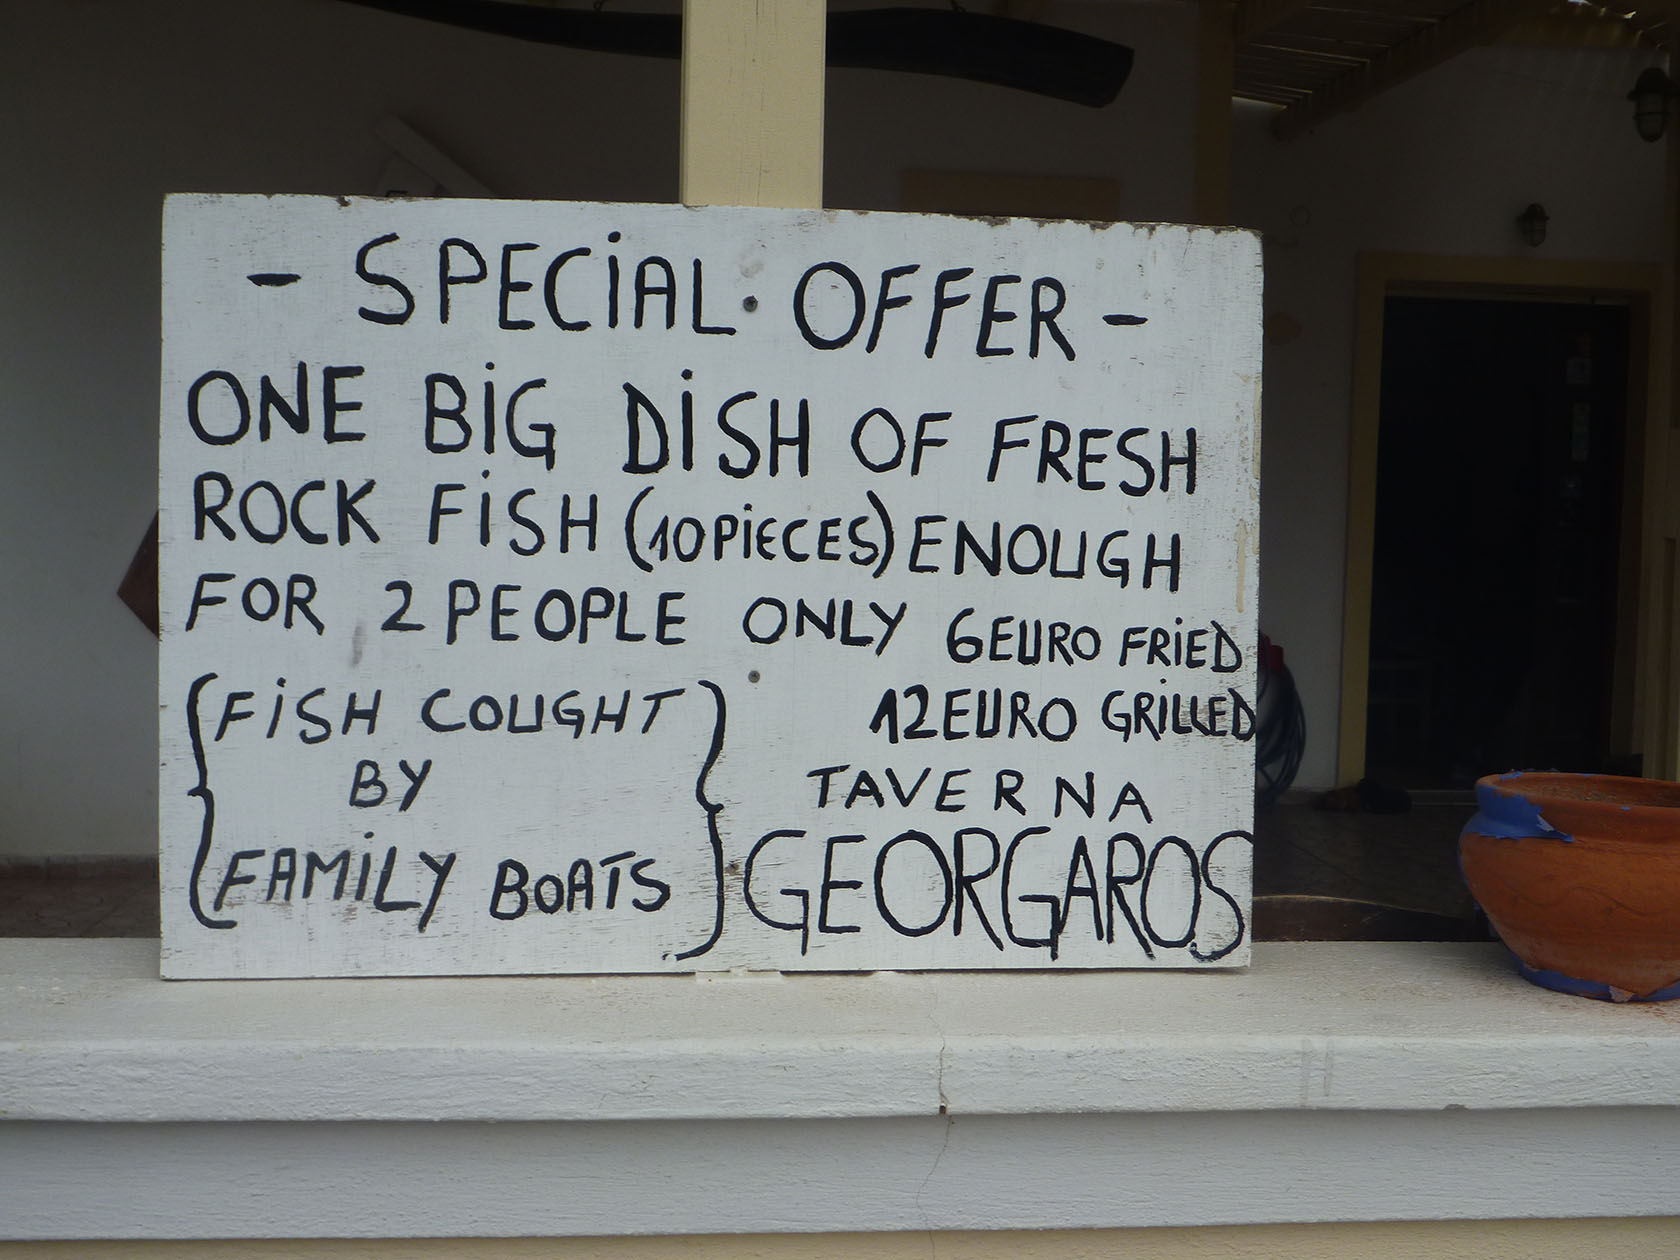 - SPECIAL OFFER -
ONE BIG DISH OF FRESH
ROCK FISH (10 PIECES) ENOUGH
FOR 2 PEOPLE ONLY 6 EURO FRIED
12 EURO GRILLED
{FISH COUGHT
BY
FAMILY BOATS}
TAVERNA
GEORGAROS